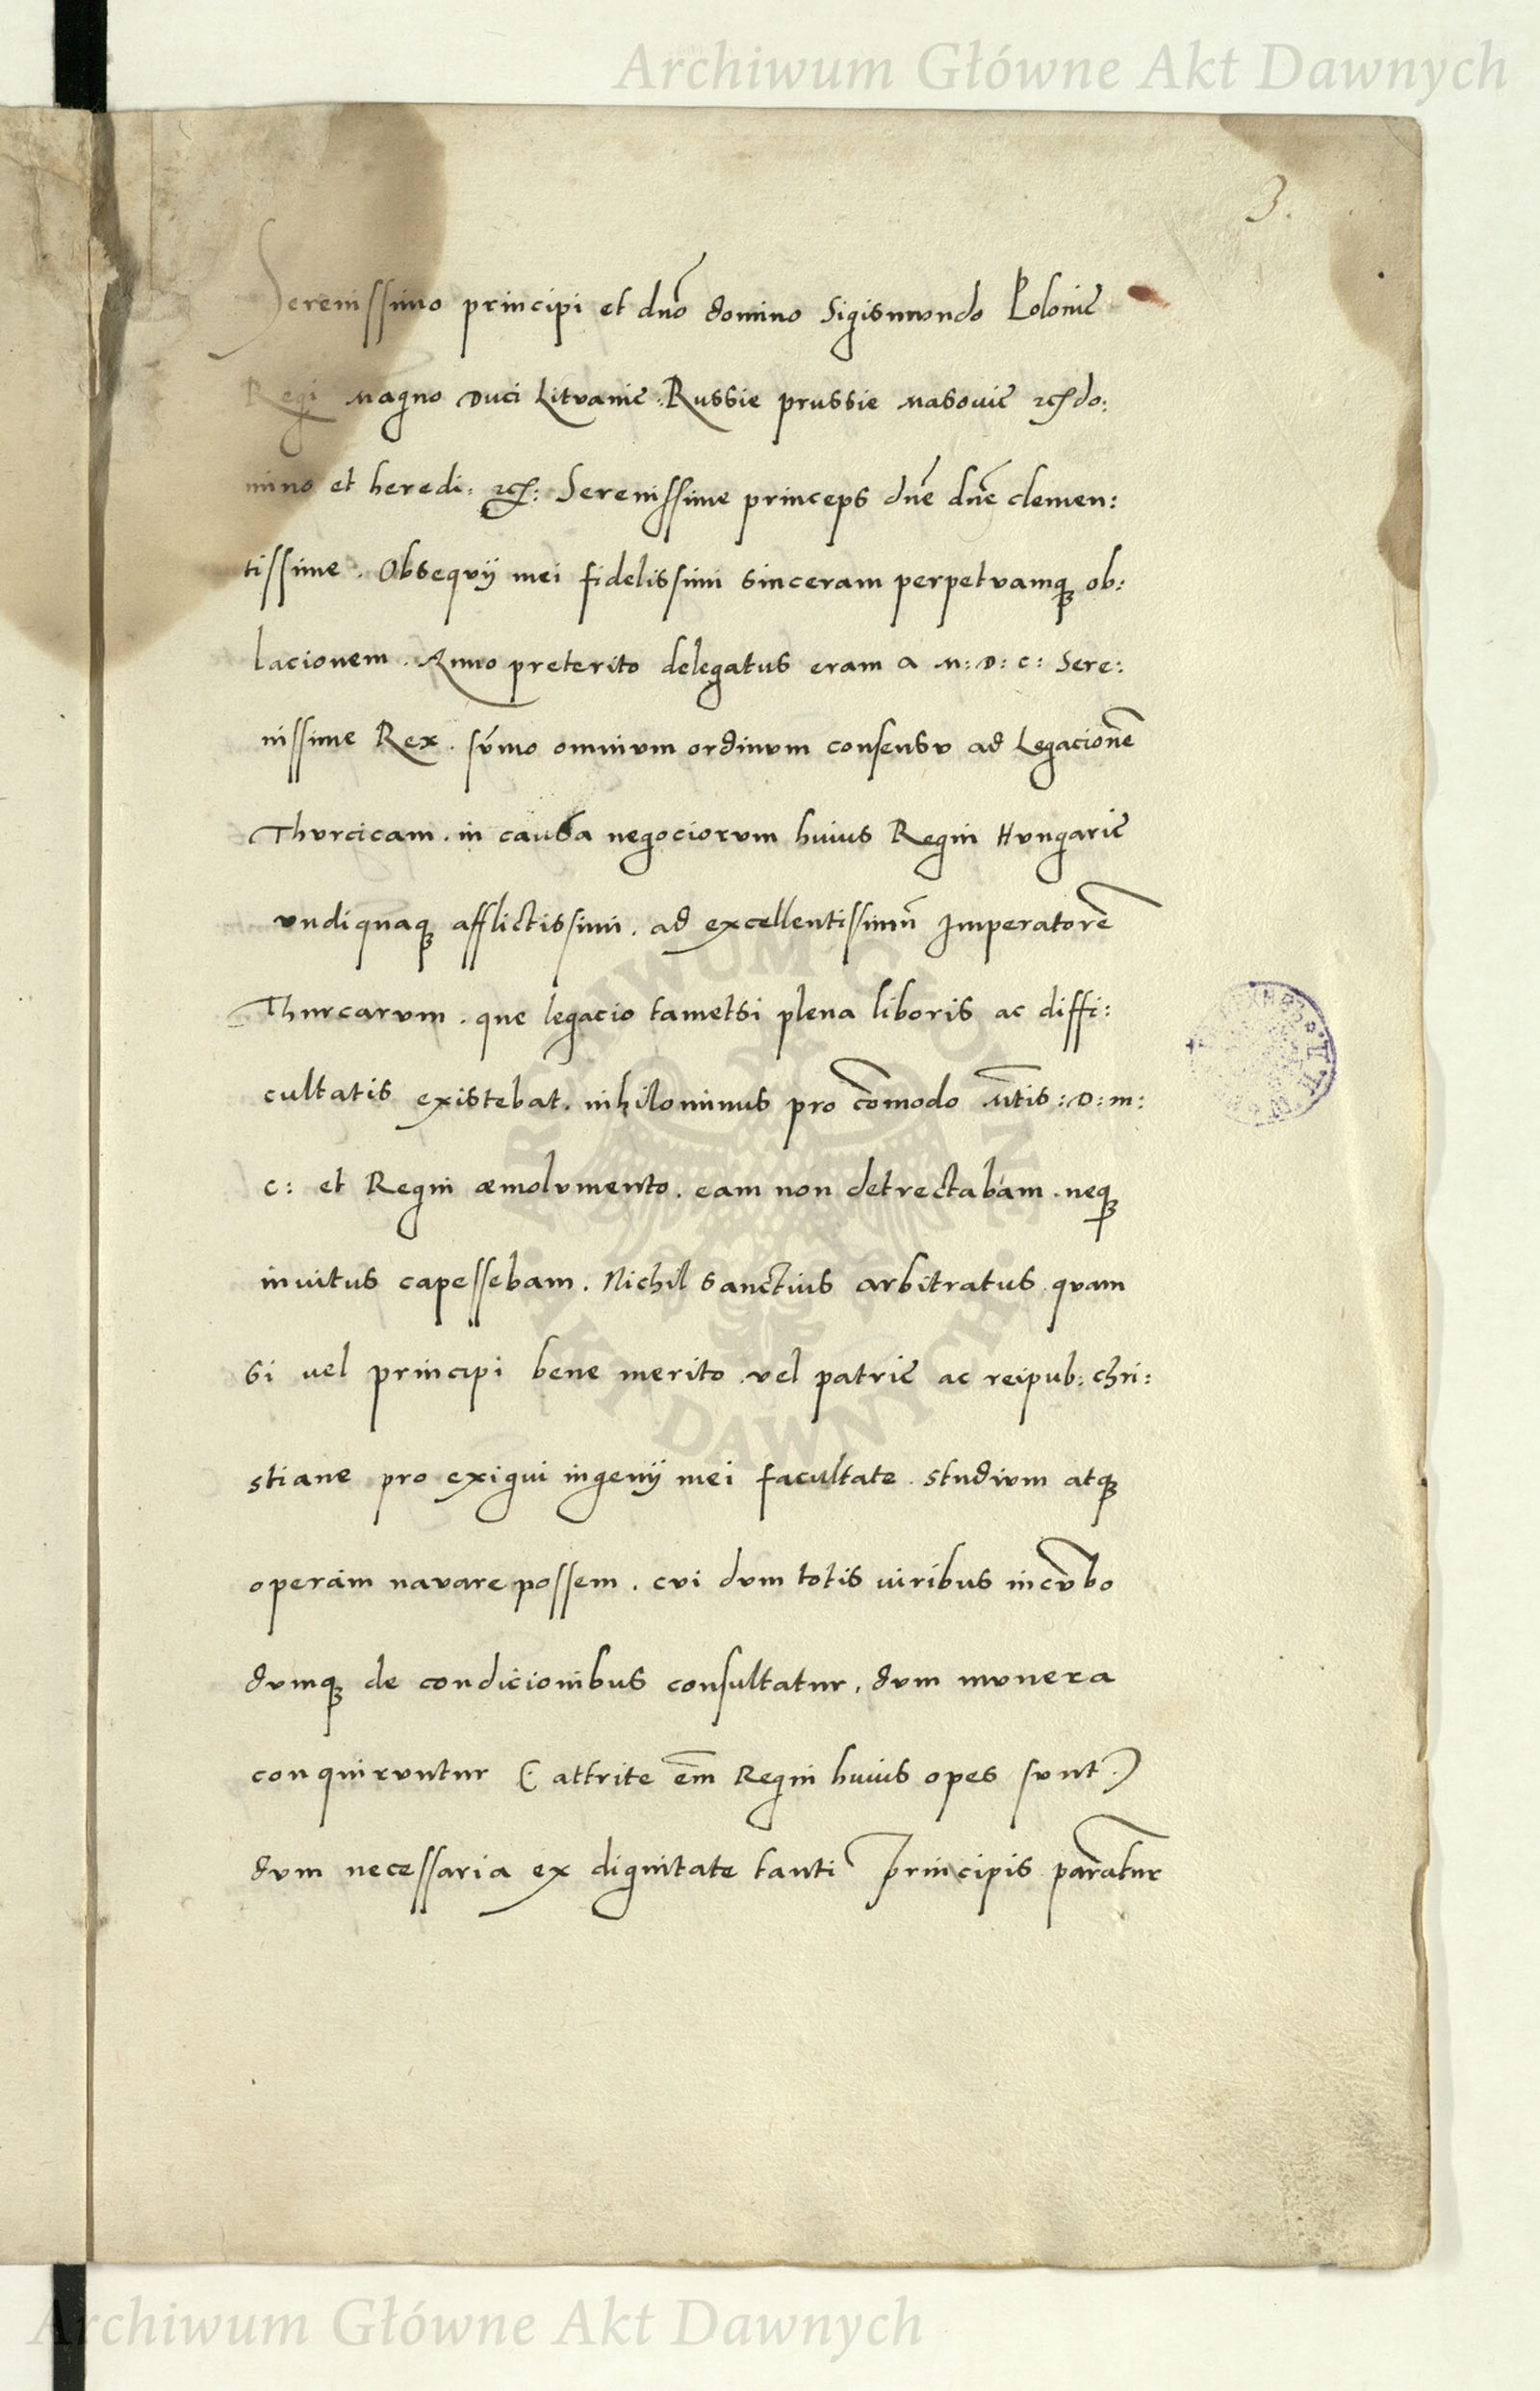 Archiwum Główne Akt Dawnych
3.
Serenissimo principi et dño domino Sigismundo Polonie
Regi Magno Duci Litvanie Russie prussie Masouie do:
mino et heredi: Serenissime princeps dñe dñe clemen:
tissime. Obsequij mei fidelissimi sinceram perpetvamqȝ ob:
lacionem. Anno preterito delegatus eram a M: D: C: Sere:
nissime Rex. sv̄mo omnivm ordinvm consensv ad Legacionē
Thvrcicam. in causa negociorvm huius Regni Hvngarie
vndiquaqȝ afflictissimi. ad excellentissimū Imperatorē
Thurcarvm. que legacio tametsi plena liboris ac diffi:
cultatis existebat. nihilominus pro cōmodo M̄tis: D: m:
c: et Regni æmolvmento. eam non detrectabam. neqȝ
inuitus capessebam. Nichil sanctius arbitratus quam
si uel principi bene merito vel patrie ac reipub: chri:
stiane pro exigui ingenij mei facultate. studivm atqȝ
operam navare possem. cvi dvm totis uiribus incv̄bo
dvmqȝ de condicionibus consultatur. dvm mvnera
conquirvntur (: attrite em̄ Regni huius opes svnt.)
dvm necessaria ex dignitate tanti principis parātur
ARCHIWUM GŁÓWNE
AKT DAWNYCH
Archiwum Główne Akt Dawnych